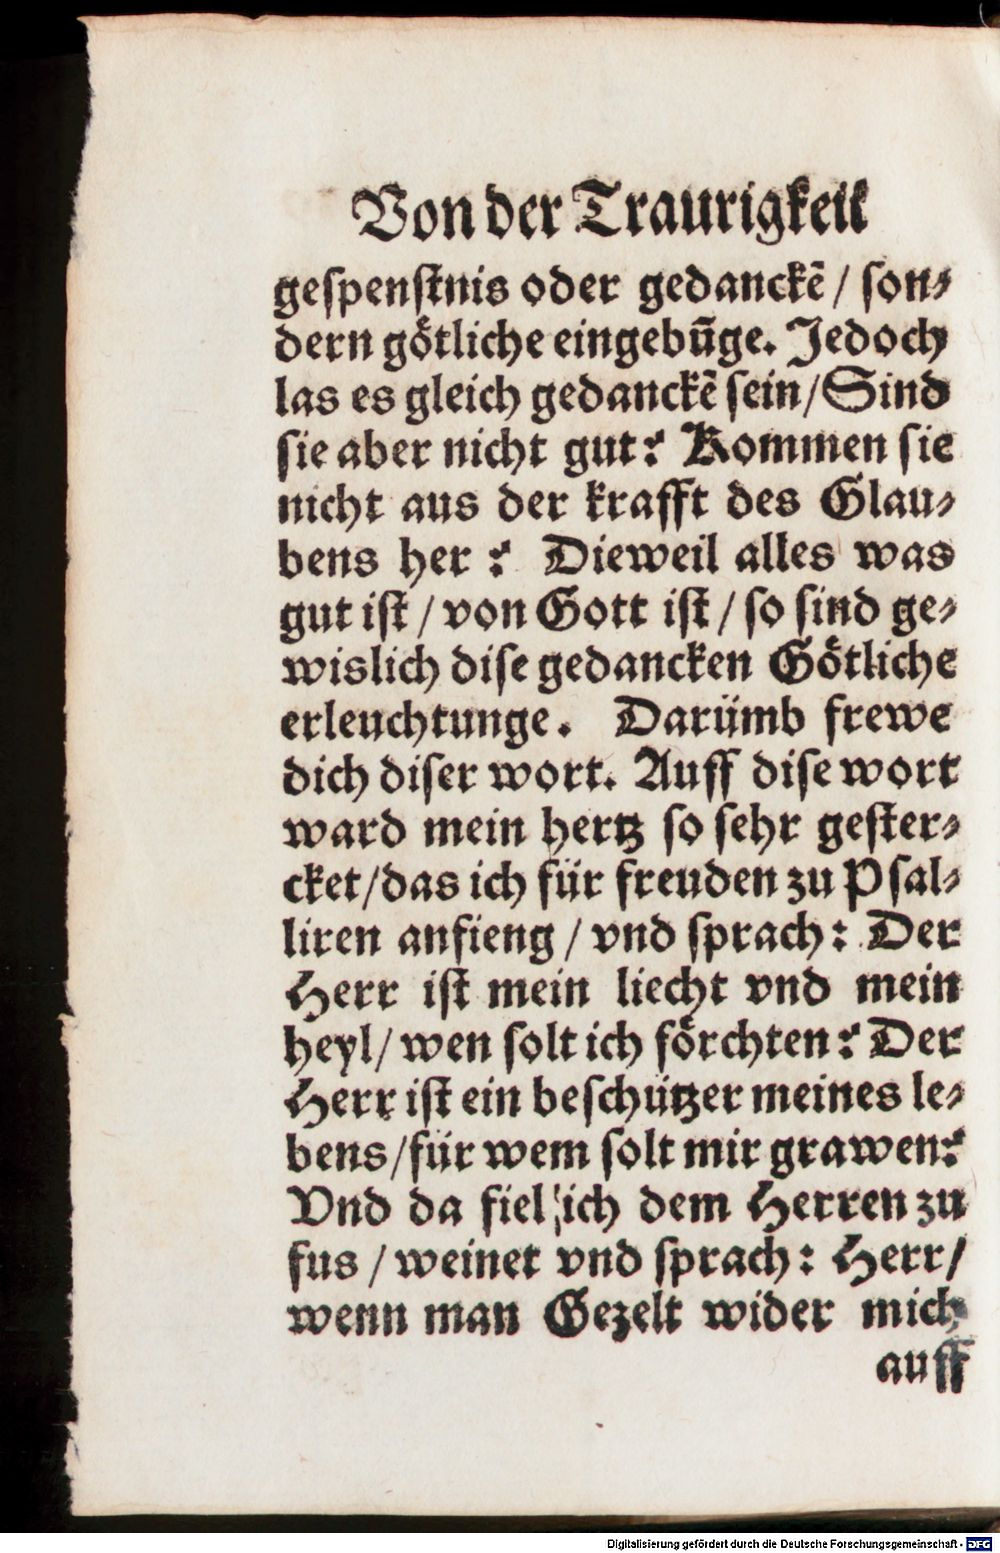 Von der Traurigkeit
gespenstnis oder gedanckẽ / son⸗
dern goͤtliche eingebũge. Jedoch
las es gleich gedanckẽ sein / Sind
sie aber nicht gut? Kommen sie
nicht aus der krafft des Glau⸗
bens her? Dieweil alles was
gut ist / von Gott ist / so sind ge⸗
wislich dise gedancken Goͤtliche
erleuchtunge. Darümb frewe
dich diser wort. Auff dise wort
ward mein hertz so sehr gester⸗
cket / das ich für freuden zu Psal⸗
liren anfieng / vnd sprach: Der
Herr ist mein liecht vnd mein
heyl / wen solt ich foͤrchten? Der
Herr ist ein beschützer meines le⸗
bens / für wem solt mir grawen?
Vnd da fiel ich dem Herren zu
fus / weinet vnd sprach: Herr /
wenn man Gezelt wider mich
auff
Digitalisierung gefördert durch die Deutsche Forschungsgemeinschaft - DFG